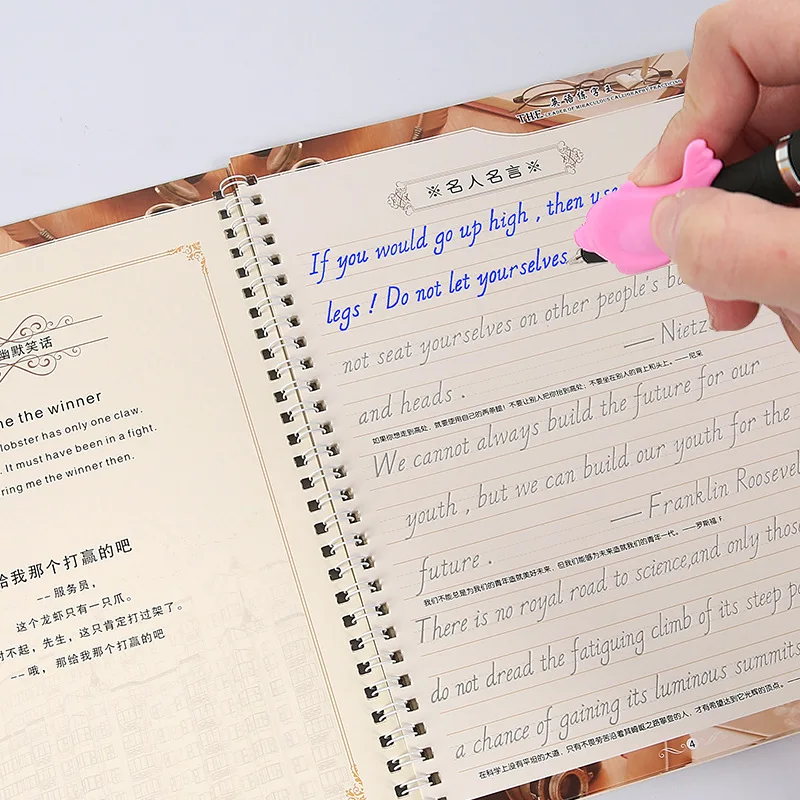 幽默笑话
me the winner
lobster has only one claw.
. It must have been in a fight.
ring me the winner then.
给我那个打赢的吧
--服务员,
这个龙虾只有一只爪。
对不起, 先生, 这只肯定打过架了。
--哦, 那给我那个打赢的吧
英语练字王
THE LEADER OF MIRACULOUS CALLIGRAPHY PRACTICING
※名人名言※
If you would go up high , then use
legs ! Do not let yourselves
not seat yourselves on other people's ba
— Nietz
and heads .
如果你想走到高处, 就要使用自己的两条腿! 不要让别人把你抬到高处; 不要坐在别人的背上和头上。——尼采
We cannot always build the future for our
youth , but we can build our youth for the
— Franklin Roosevel
future .
我们不能总是为我们的青年造就美好未来, 但我们能够为未来造就我们的青年一代。——罗斯福 F.
There is no royal road to science,and only those
do not dread the fatiguing climb of its steep pa
a chance of gaining its luminous summits
在科学上没有平坦的大道, 只有不畏劳苦沿着其崎岖之路攀登的人, 才有希望达到它光辉的顶点。
4